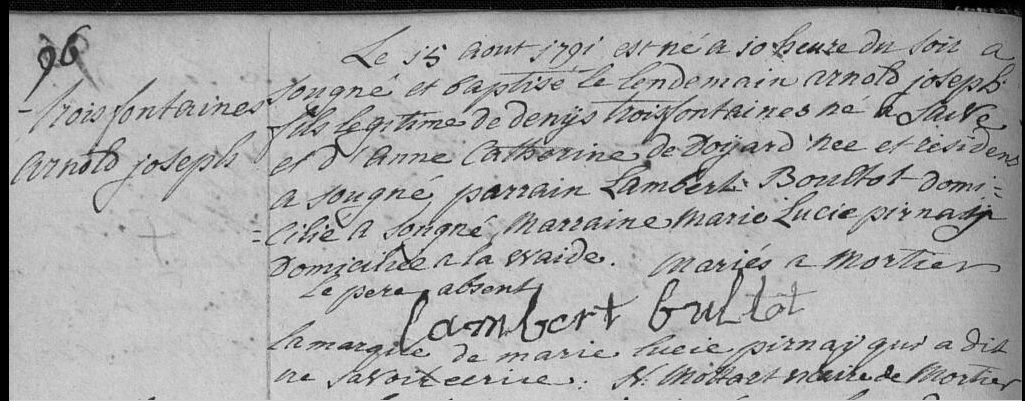 96
Trois fontaines
Arnold joseph
Le 15 aout 1791 est né a 10 heure du soir a
sougné et baptisé le lendemain arnold joseph
fils legitime de denijs troisfontaines né a Saive
et d'anne Catherine de Doyard née et residens
a sougné, parrain Lambert Boultot domi=
=cilié a sougné, Marraine Marie Lucie pirnaij
Domiciliée a la Waide. Mariés a Mortier
le pere absent
lambert bultot
la marque de marie lucie pirnaij qui a dit
ne savoir ecrire: N. Mottart vicaire de Mortier